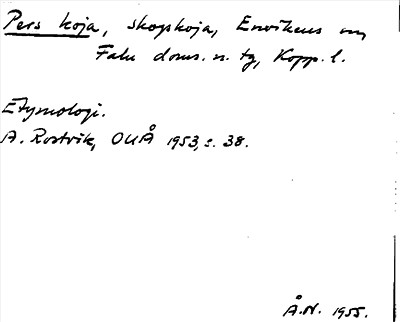 Pers koja, skogskoja, Enviken sn,
Falu doms. n. tg, Kopp. l.
Etymologi.
A. Rostvik, OUÅ 1953, s. 38.
Å.N. 1955.